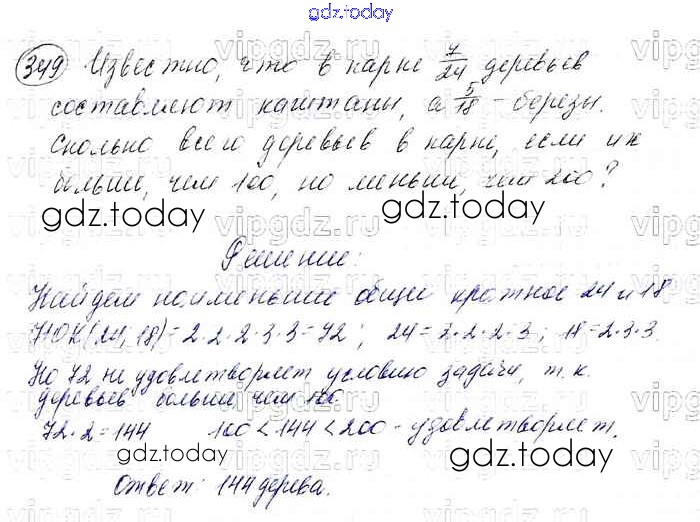 gdz.today
349 Известно, что в парке 7/24 деревьев
составляют каштаны, а 5/18 - березы.
Сколько всего деревьев в парке, если их
больше, чем 100, но меньше, чем 200?
gdz.today gdz.today
Решение:
Найдем наименьшее общее кратное 24 и 18
НОК(24, 18)=2·2·2·3·3=72; 24=2·2·2·3; 18=2·3·3.
Но 72 не удовлетворяет условию задачи, т.к.
деревьев больше, чем 100.
72·2=144 100<144<200 - удовлетворяет.
gdz.today gdz.today
Ответ: 144 дерева.